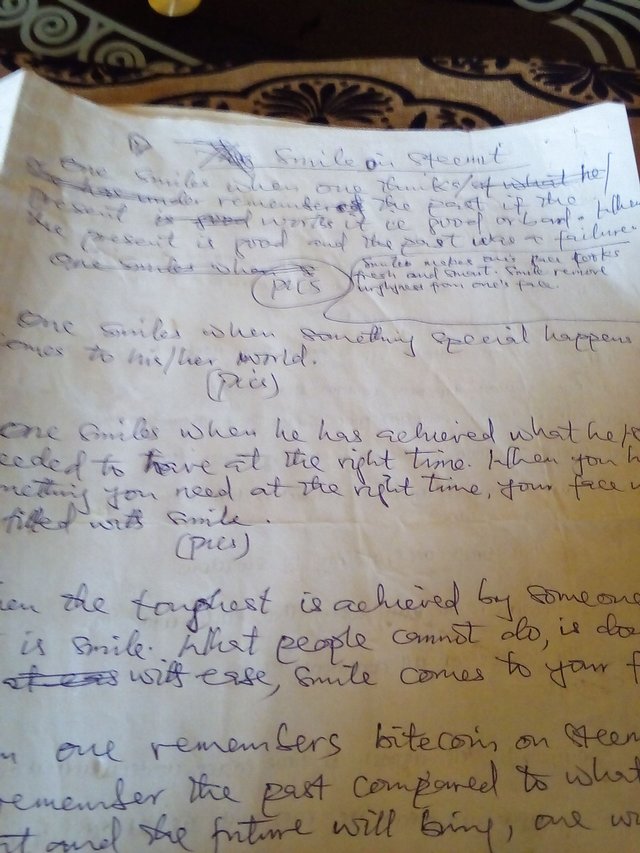 Smile on steemit
One smiles when one thinks/ he/
remembers the past if the
present words it is good or bad. When
the present is good and the past was a failure.
One smiles when
smiles makes one's face looks
fresh and smart. Smile remove
from one's face.
pics
One smiles when something special happens
comes to his/her world.
(pics)
One smiles when he has achieved what he
needed to have at the right time. When you
something you need at the right time, your face
filled with smile.
(pics)
the toughest is achieved by someone
is smile. What people cannot do, is
with ease, smile comes to your
one remembers bitecoin on
remember the past compared to what
and the future will bring, one